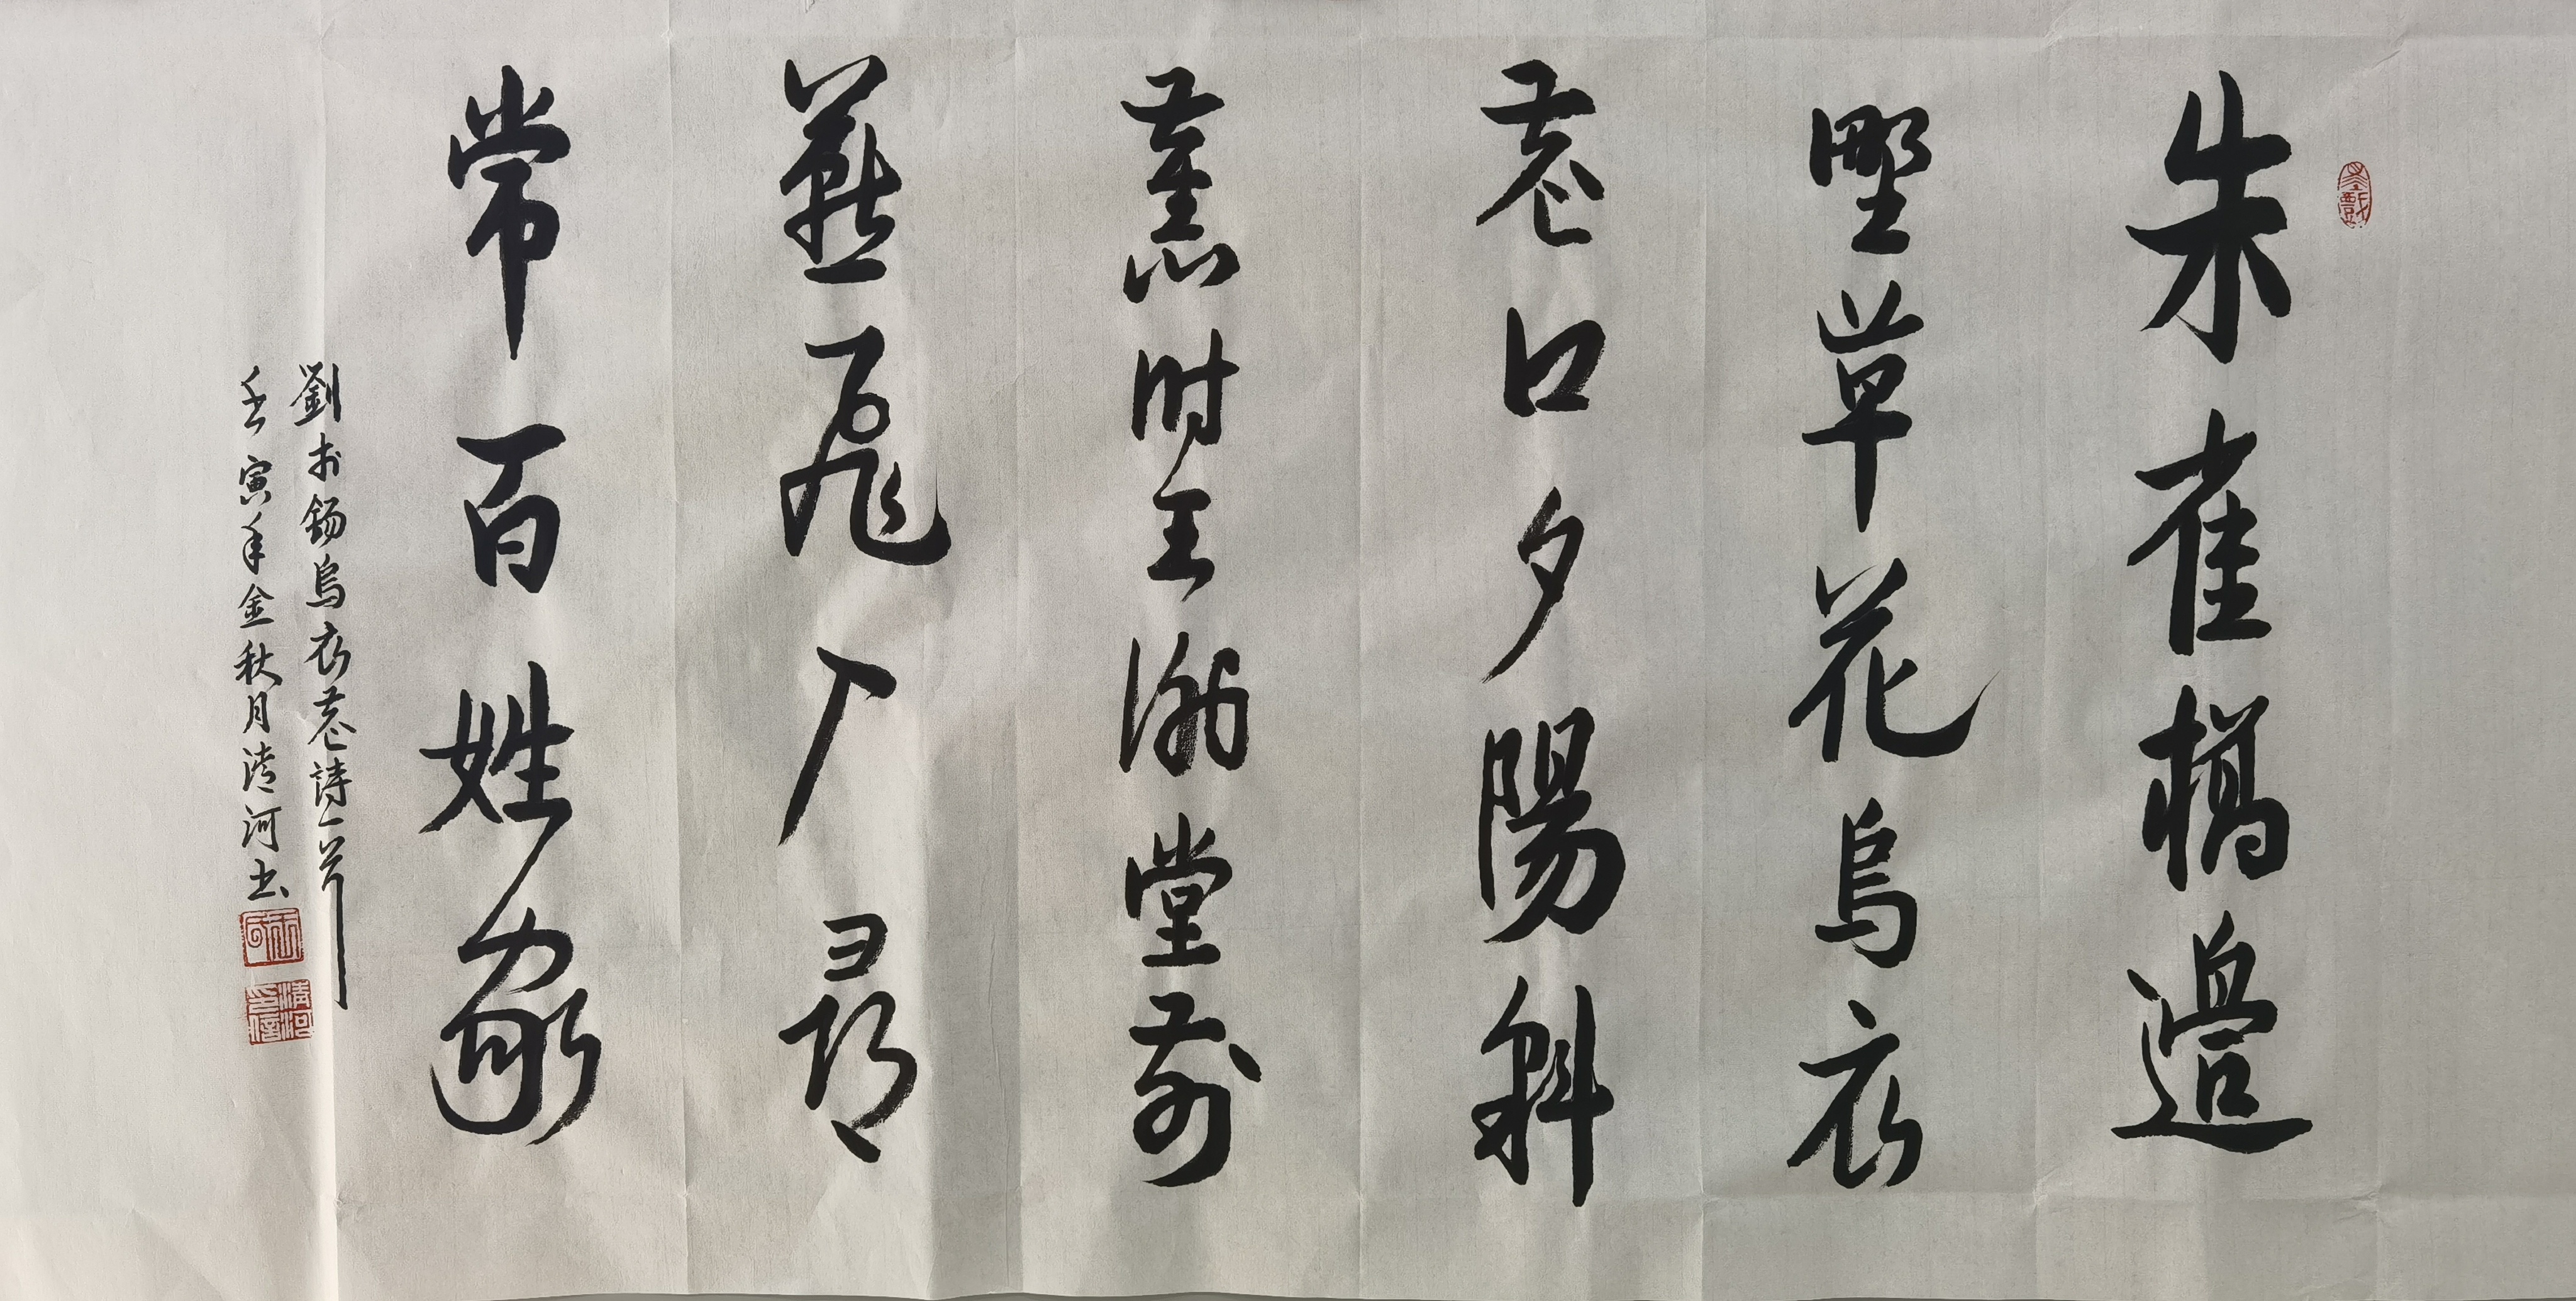 朱雀橋邉
野草花烏衣
巷口夕陽斜
舊時王謝堂前
燕飛入尋
常百姓家
劉禹錫烏衣巷詩一首
壬寅年金秋月清河书
清河印信